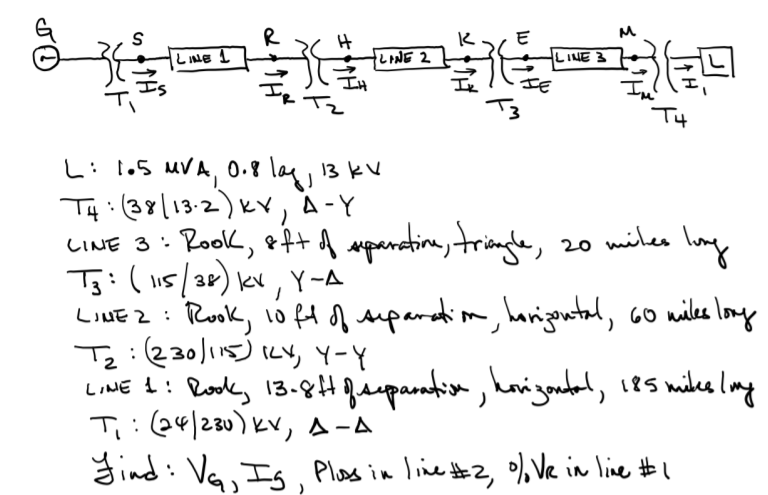 G S LINE 1 R H LINE 2 K E LINE 3 M L
T₁ I_S I_R T₂ I_H I_K T₃ I_E I_M T₄ I₁
L: 1.5 MVA, 0.8 lag, 13 kV
T₄: (38/13.2) kV, Δ-Y
LINE 3: Rook, 8ft of separation, triangle, 20 miles long
T₃: (115/38) kV, Y-Δ
LINE 2: Rook, 10 ft of separation, horizontal, 60 miles long
T₂: (230/115) kV, Y-Y
LINE 1: Rook, 13.8ft of separation, horizontal, 185 miles long
T₁: (24/230) kV, Δ-Δ
Find: V_G, I_S, Ploss in line #2, % VR in line #1